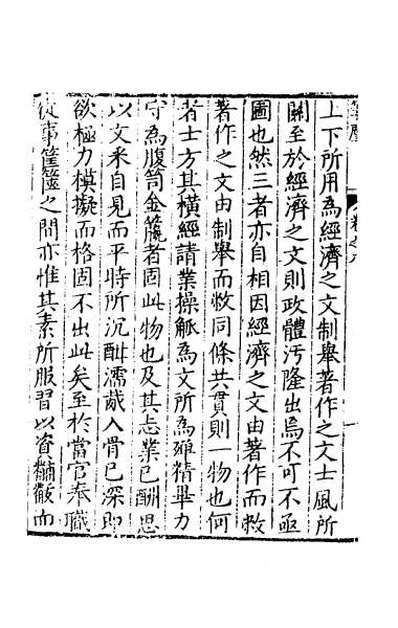 卷之八
上下所用為經濟之文制舉著作之文士風所
關至於經濟之文則政體汚隆出焉不可不亟
圖也然三者亦自相因經濟之文由著作而敝
著作之文由制舉而敝同條共貫則一物也何
者士方其橫經請業操觚為文所為殫精畢力
守為腹笥金籯者固此物也及其志業已酬思
以文采自見而平時所沉酣濡胾入骨已深即
欲極力模擬而格固不出此矣至於當官奉職
從事筐篋之間亦惟其素所服習以資黼黻而